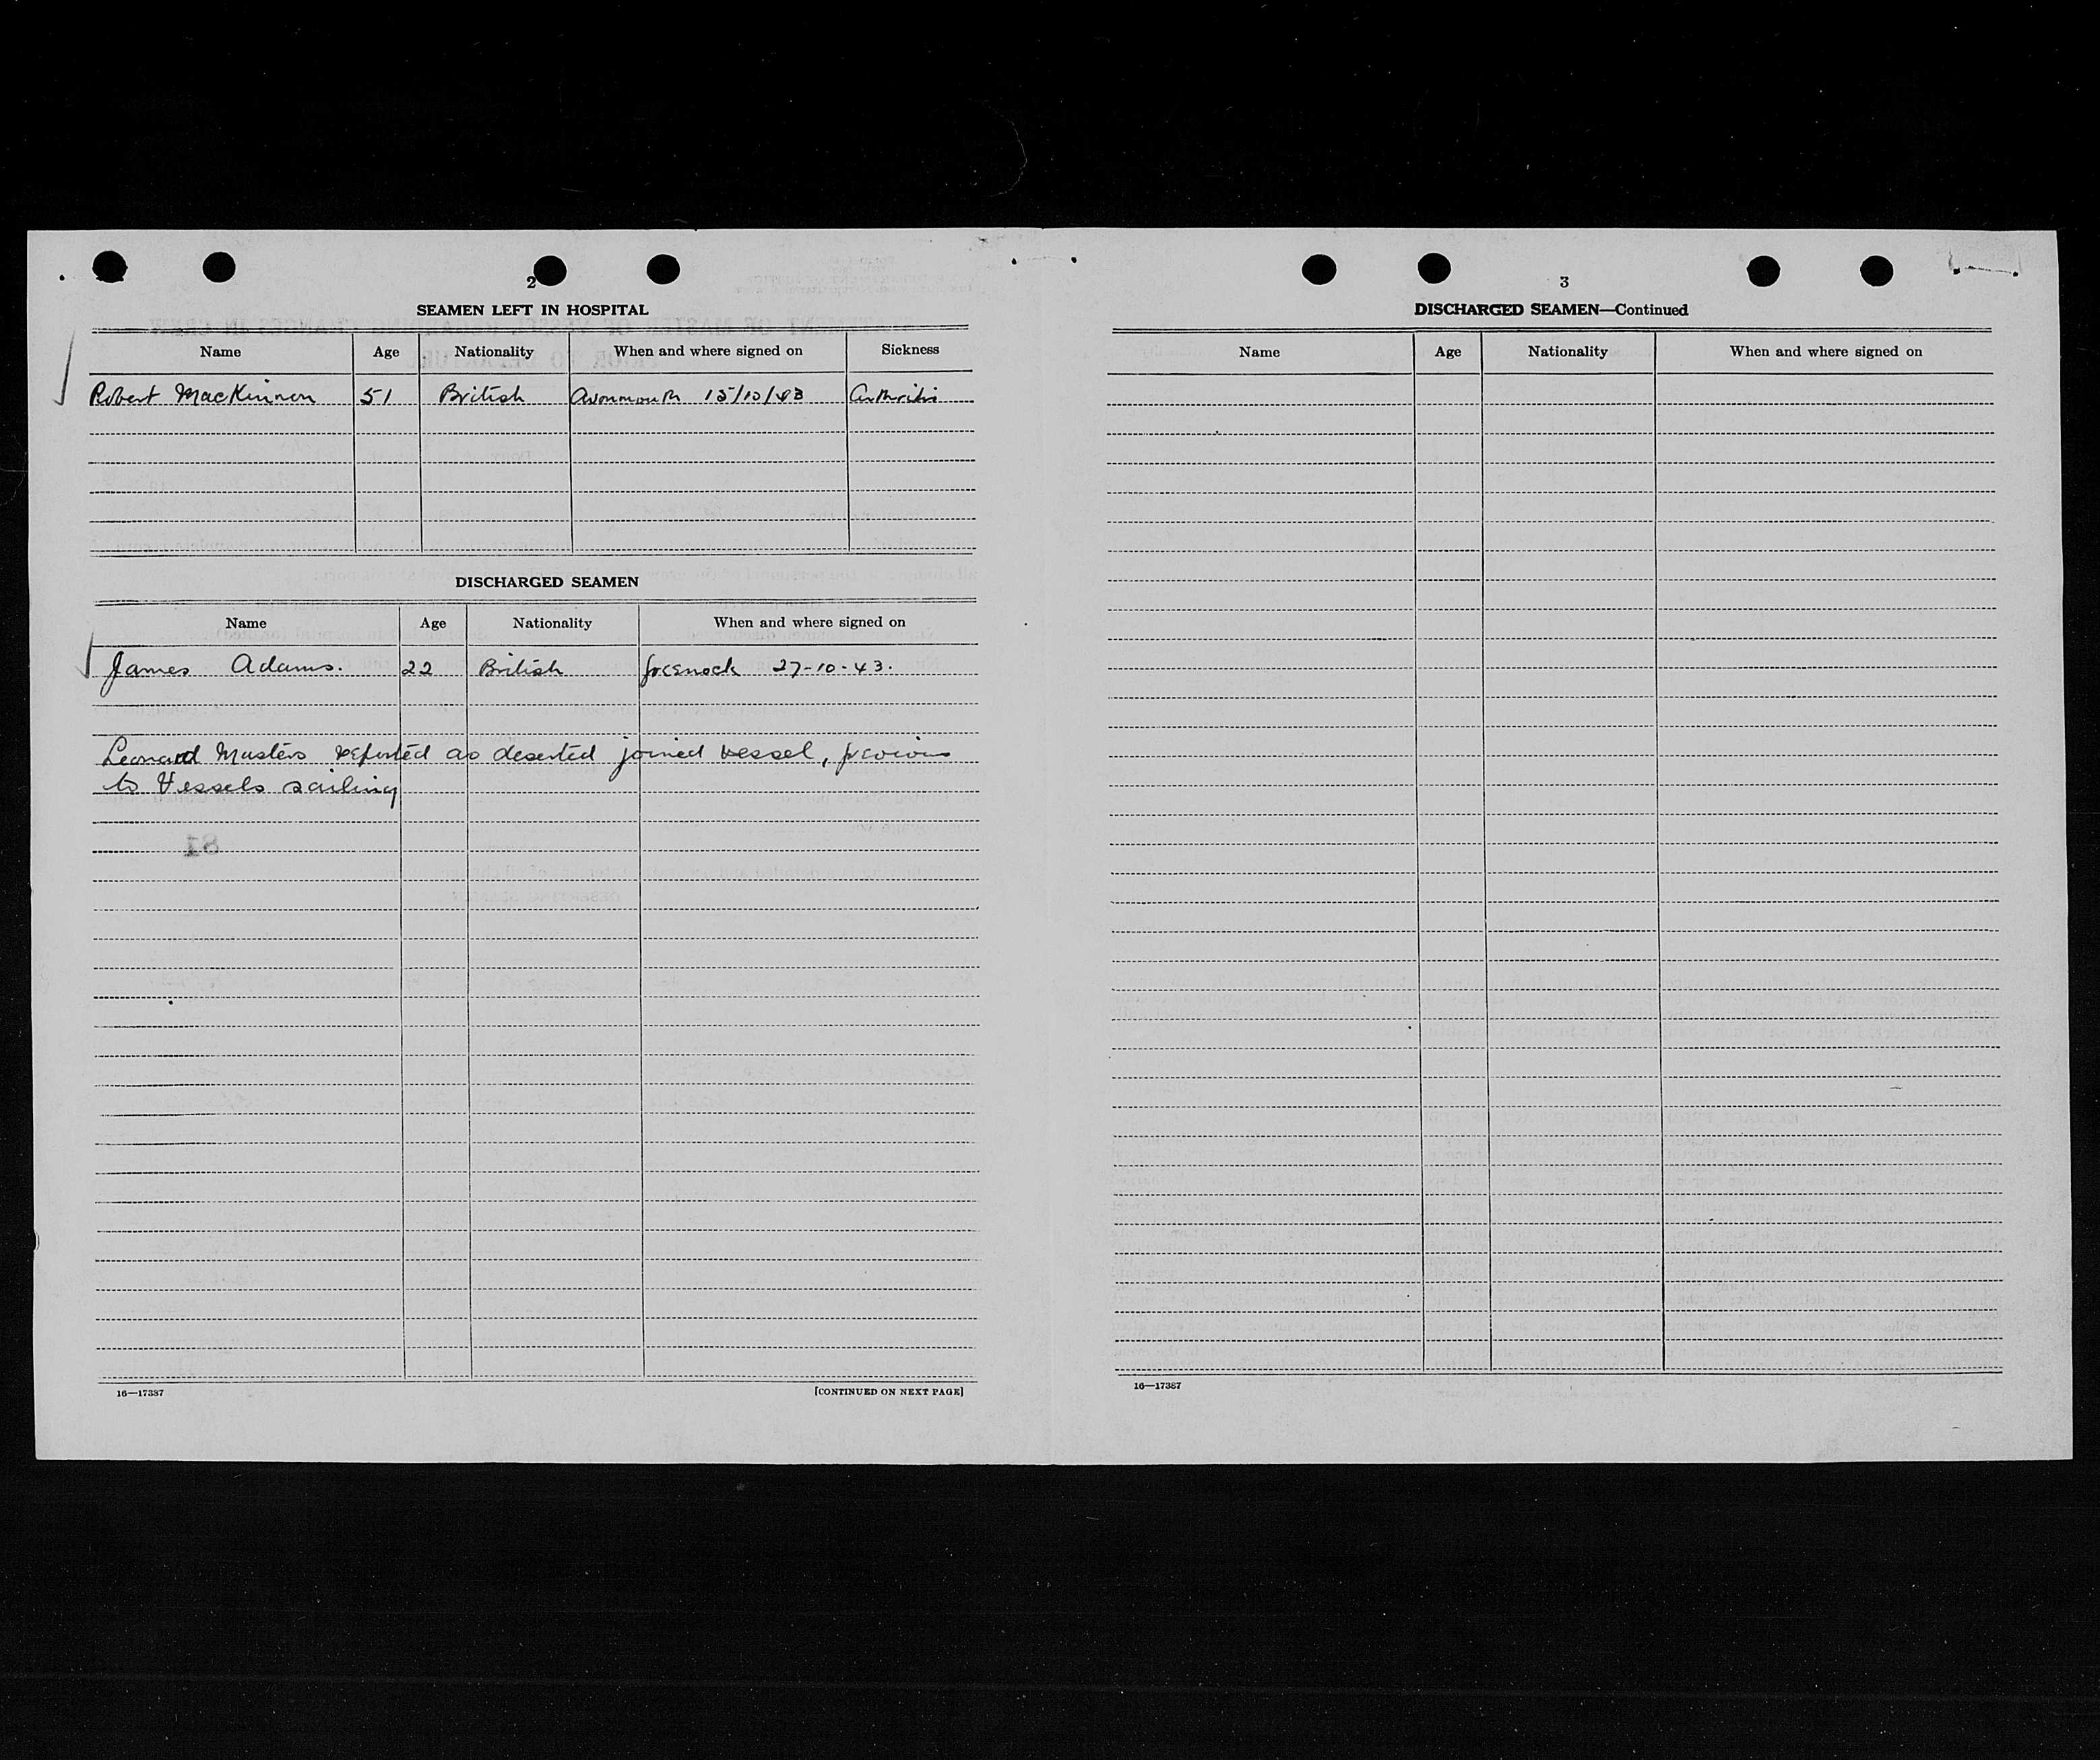 2
SEAMEN LEFT IN HOSPITAL
Name Age Nationality When and where signed on Sickness
Robert MacKinnon 51 British Avonmouth 15/10/43 Arthritis
DISCHARGED SEAMEN
Name Age Nationality When and where signed on
James Adams. 22 British Greenock 27-10-43.
Leonard Masters reported as deserted joined vessel, previous
to Vessels sailing
16—17387 [CONTINUED ON NEXT PAGE]
3
DISCHARGED SEAMEN—Continued
Name Age Nationality When and where signed on
16—17387